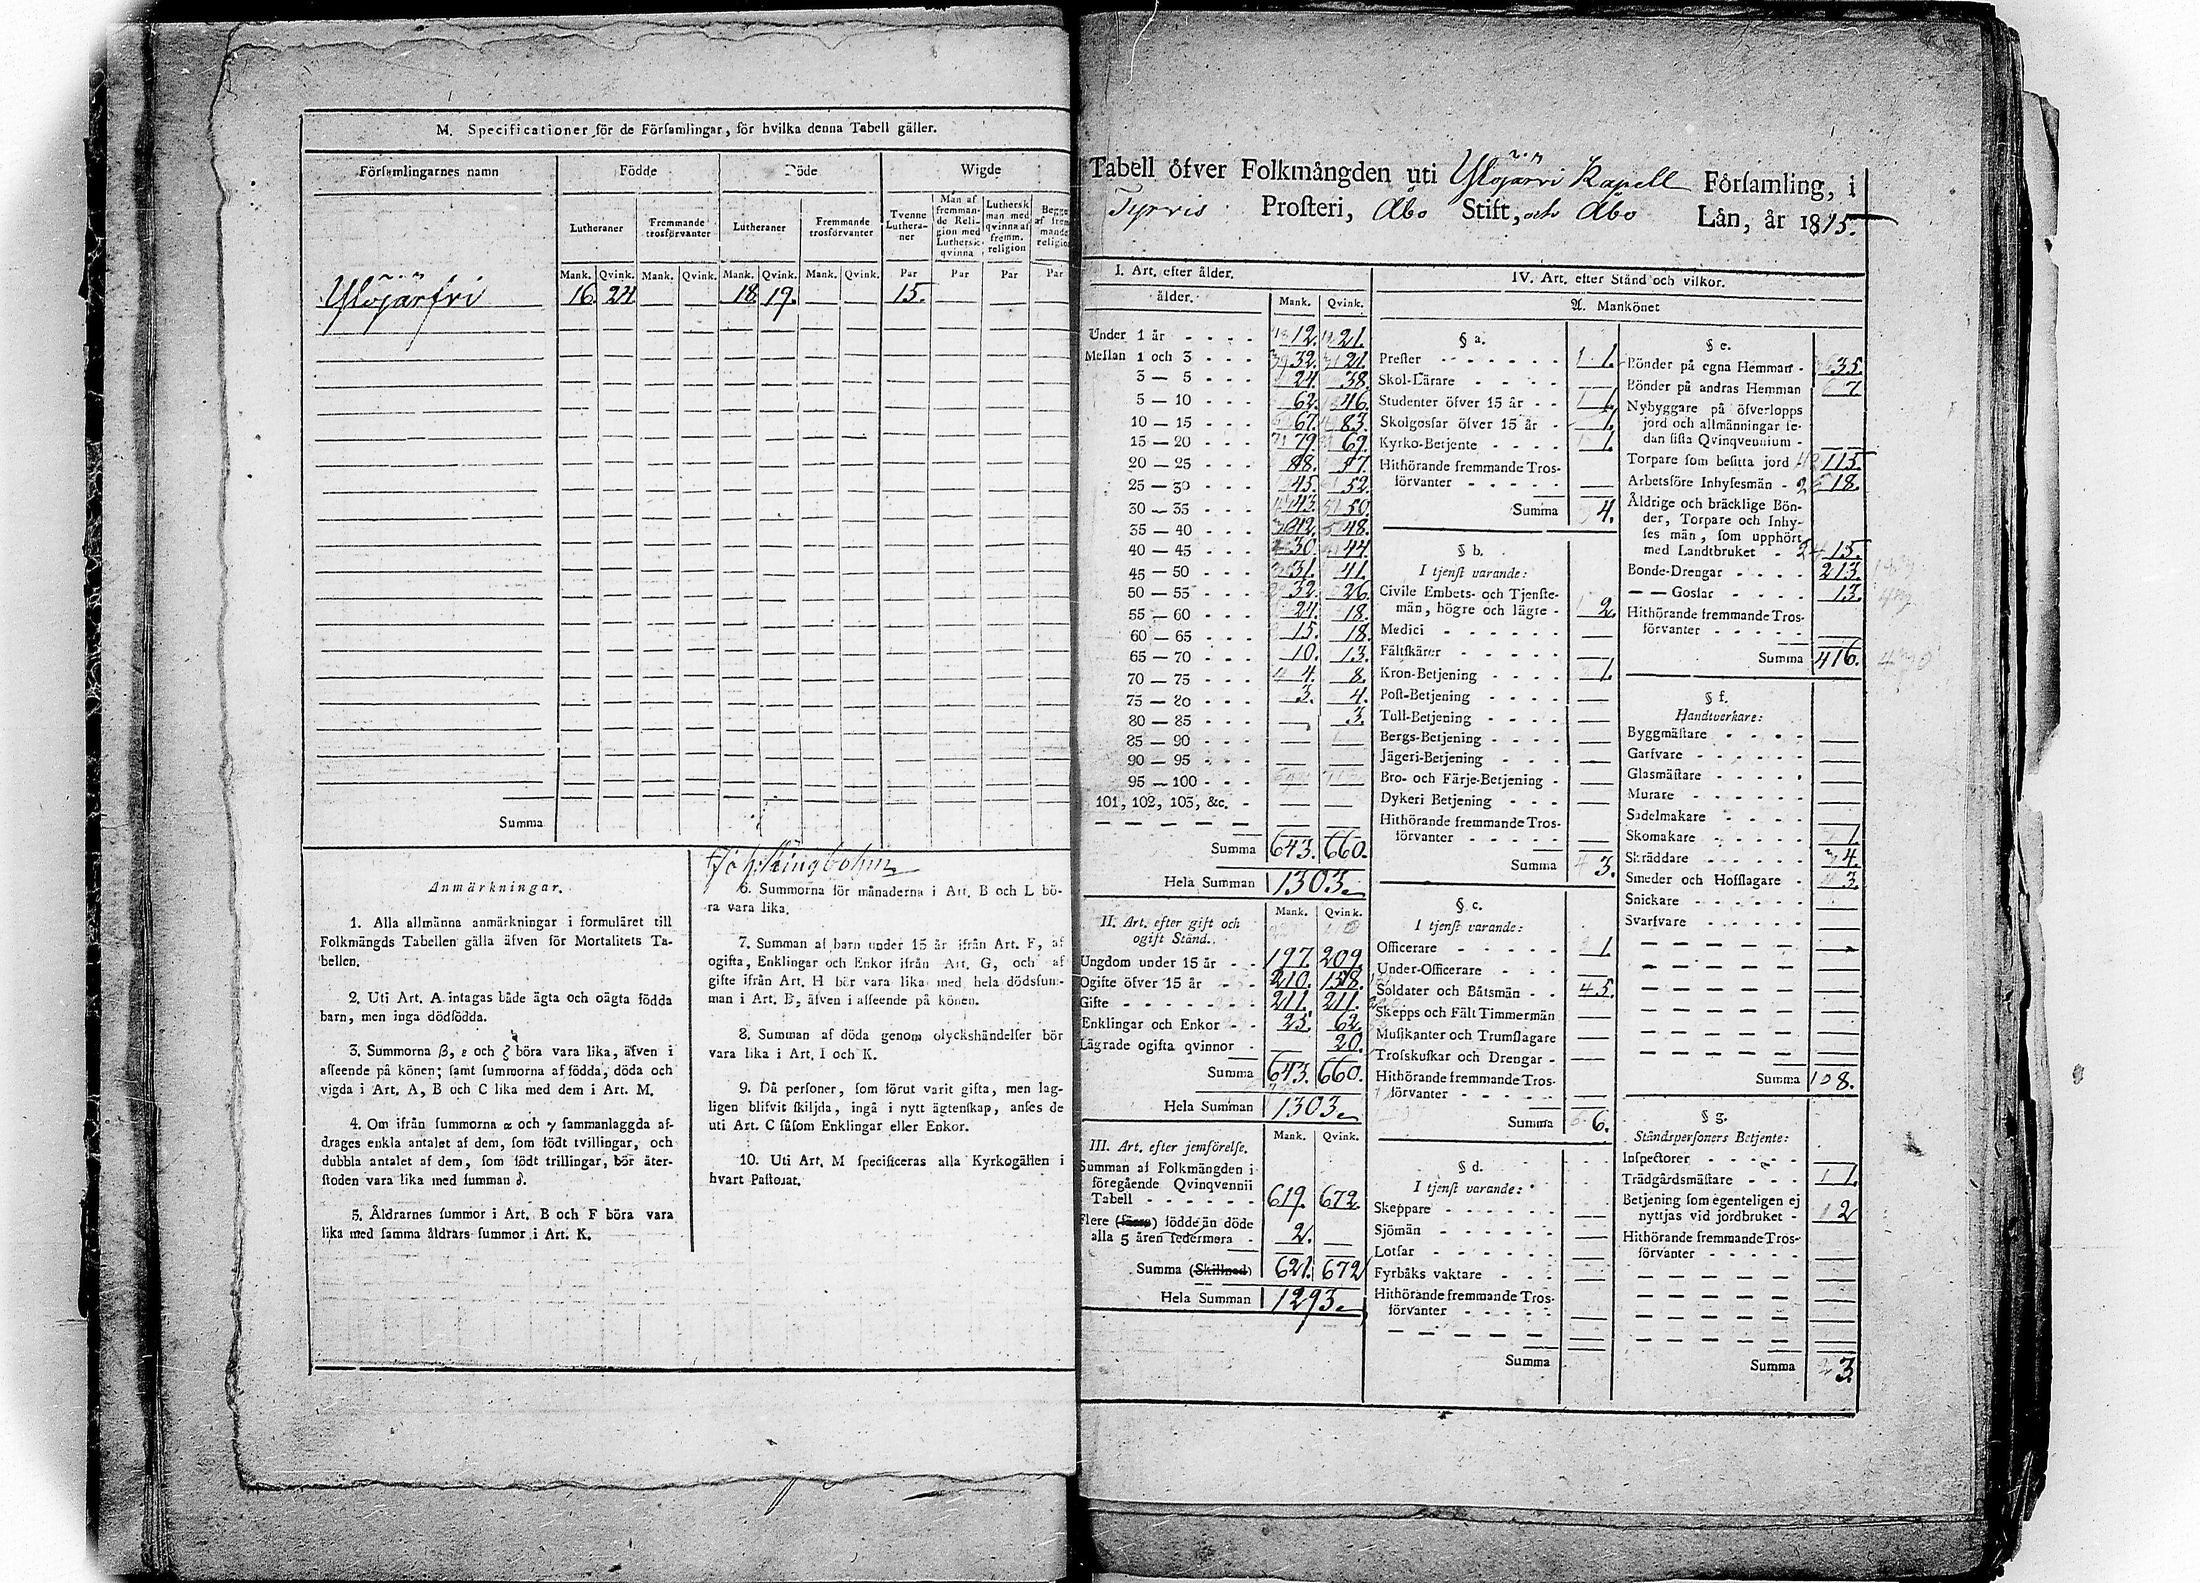 M. Specificationer för de Församlingar, för hvilka denna Tabell gäller.
Församlingarnes namn Födde Döde Wigde
Lutheraner Fremmande trosförvanter Lutheraner Fremmande trosförvanter Tvenne Lutheraner Man af fremmande Religion med Luthersk qvinna Luthersk man med qvinna af fremm. religion
Mank. Qvink. Mank. Qvink. Mank. Qvink. Mank. Qvink. Par Par Par Par
Ylöjärfvi 16 24 — — 18 19. — — 15. — — —
Summa
Joh. Kingbohm
Anmärkningar.
1. Alla allmänna anmärkningar i formuläret till
Folkmängds Tabellen gälla äfven för Mortalitets Ta-
bellen.
2. Uti Art. A intagas både ägta och oägta födda
barn, men inga dödfödda.
3. Summorna β, ε och ζ böra vara lika, äfven i
afseende på könen; samt summorna af födda, döda och
vigda i Art. A, B och C lika med dem i Art. M.
4. Om ifrån summorna α och γ sammanlaggda af-
drages enkla antalet af dem, som födt tvillingar, och
dubbla antalet af dem, som födt trillingar, bör åter-
stoden vara lika med summan δ.
5. Åldrarnes summor i Art. B och F böra vara
lika med samma åldrars summor i Art. K.
6. Summorna för månaderna i Art. B och L bö-
ra vara lika.
7. Summan af barn under 15 år ifrån Art. F, af
ogifta, Enklingar och Enkor ifrån Art. G, och af
gifte ifrån Art. H bör vara lika med hela dödssum-
man i Art. B, äfven i afseende på könen.
8. Summan af döda genom olyckshändelser bör
vara lika i Art. I och K.
9. Då personer, som förut varit gifta, men lag-
ligen blifvit skiljda, ingå i nytt ägtenskap, anses de
uti Art. C såsom Enklingar eller Enkor.
10. Uti Art. M specificeras alla Kyrkogällen i
hvart Pastorat.
Tabell öfver Folkmängden uti Ylöjärvi Kapell Församling, i
Tyrvis Prosteri, Åbo Stift, och Åbo Län, år 1815.
I. Art. efter ålder.
ålder. Mank. Qvink.
Under 1 år 12. 21.
Mellan 1 och 3 32. 21.
3 — 5 24. 38.
5 — 10 62. 46.
10 — 15 67. 83.
15 — 20 79. 69.
20 — 25 88. 57.
25 — 30 45. 52.
30 — 35 43. 50.
35 — 40 42. 48.
40 — 45 30. 44.
45 — 50 31. 41.
50 — 55 32. 26.
55 — 60 24. 18.
60 — 65 15. 18.
65 — 70 10. 13.
70 — 75 4. 8.
75 — 80 3. 4.
80 — 85 — 3.
85 — 90 — —
90 — 95 — —
95 — 100
101, 102, 103, &c. — —
Summa 643. 660.
Hela Summan 1303.
II. Art. efter gift och ogift Stånd. Mank. Qvink.
Ungdom under 15 år 197. 209.
Ogifte öfver 15 år 210. 158.
Gifte 211. 211.
Enklingar och Enkor 25. 62.
Lägrade ogifta qvinnor — 20.
Summa 643. 660.
Hela Summan 1303.
III. Art. efter jemförelse. Mank. Qvink.
Summan af Folkmängden i
föregående Qvinqvennii
Tabell 619. 672.
Flere (färre) födde än döde
alla 5 åren sedermera 2. —
Summa (Skillnad) 621. 672
Hela Summan 1293.
IV. Art. efter Stånd och vilkor.
A. Mankönet
§ a.
Prester 1.
Skol-Lärare —
Studenter öfver 15 år 1.
Skolgossar öfver 15 år 1.
Kyrko-Betjente 1.
Hithörande fremmande Tros-
förvanter —
Summa 4.
§ b.
I tjenst varande:
Civile Embets- och Tjenste-
män, högre och lägre 2.
Medici —
Fältskärer —
Kron-Betjening 1.
Post-Betjening —
Tull-Betjening —
Bergs-Betjening —
Jägeri-Betjening —
Bro- och Färje-Betjening —
Dykeri Betjening —
Hithörande fremmande Tros-
förvanter —
Summa 3.
§ c.
I tjenst varande:
Officerare 1.
Under-Officerare —
Soldater och Båtsmän 5.
Skepps och Fält Timmermän —
Musikanter och Trumslagare —
Trosskuskar och Drengar —
Hithörande fremmande Tros-
förvanter —
Summa 6.
§ d.
I tjenst varande:
Skeppare —
Sjömän —
Lotsar —
Fyrbåks vaktare —
Hithörande fremmande Tros-
förvanter —
Summa
§ e.
Bönder på egna Hemman 35.
Bönder på andras Hemman 7.
Nybyggare på öfverlopps
jord och allmänningar se-
dan sista Qvinqvennium —
Torpare som besitta jord 115.
Arbetsföre Inhysesmän 18.
Åldrige och bräcklige Bön-
der, Torpare och Inhy-
ses män, som upphört
med Landtbruket 15.
Bonde-Drengar 213.
— — Gossar 13.
Hithörande fremmande Tros-
förvanter —
Summa 416.
§ f.
Handtverkare:
Byggmästare —
Garfvare —
Glasmästare —
Murare —
Sadelmakare —
Skomakare 1.
Skräddare 4.
Smeder och Hofslagare 3.
Snickare —
Svarfvare —
Summa 8.
§ g.
Ståndspersoners Betjente:
Inspectorer —
Trädgårdsmästare 1.
Betjening som egenteligen ej
nyttjas vid jordbruket 2
Hithörande fremmande Tros-
förvanter —
Summa 3.